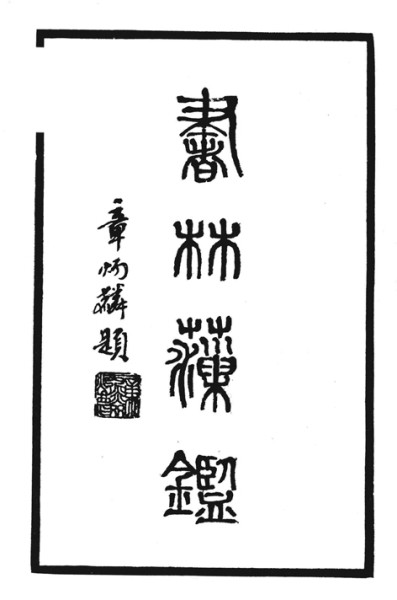 書林藻鑑
章炳麟題